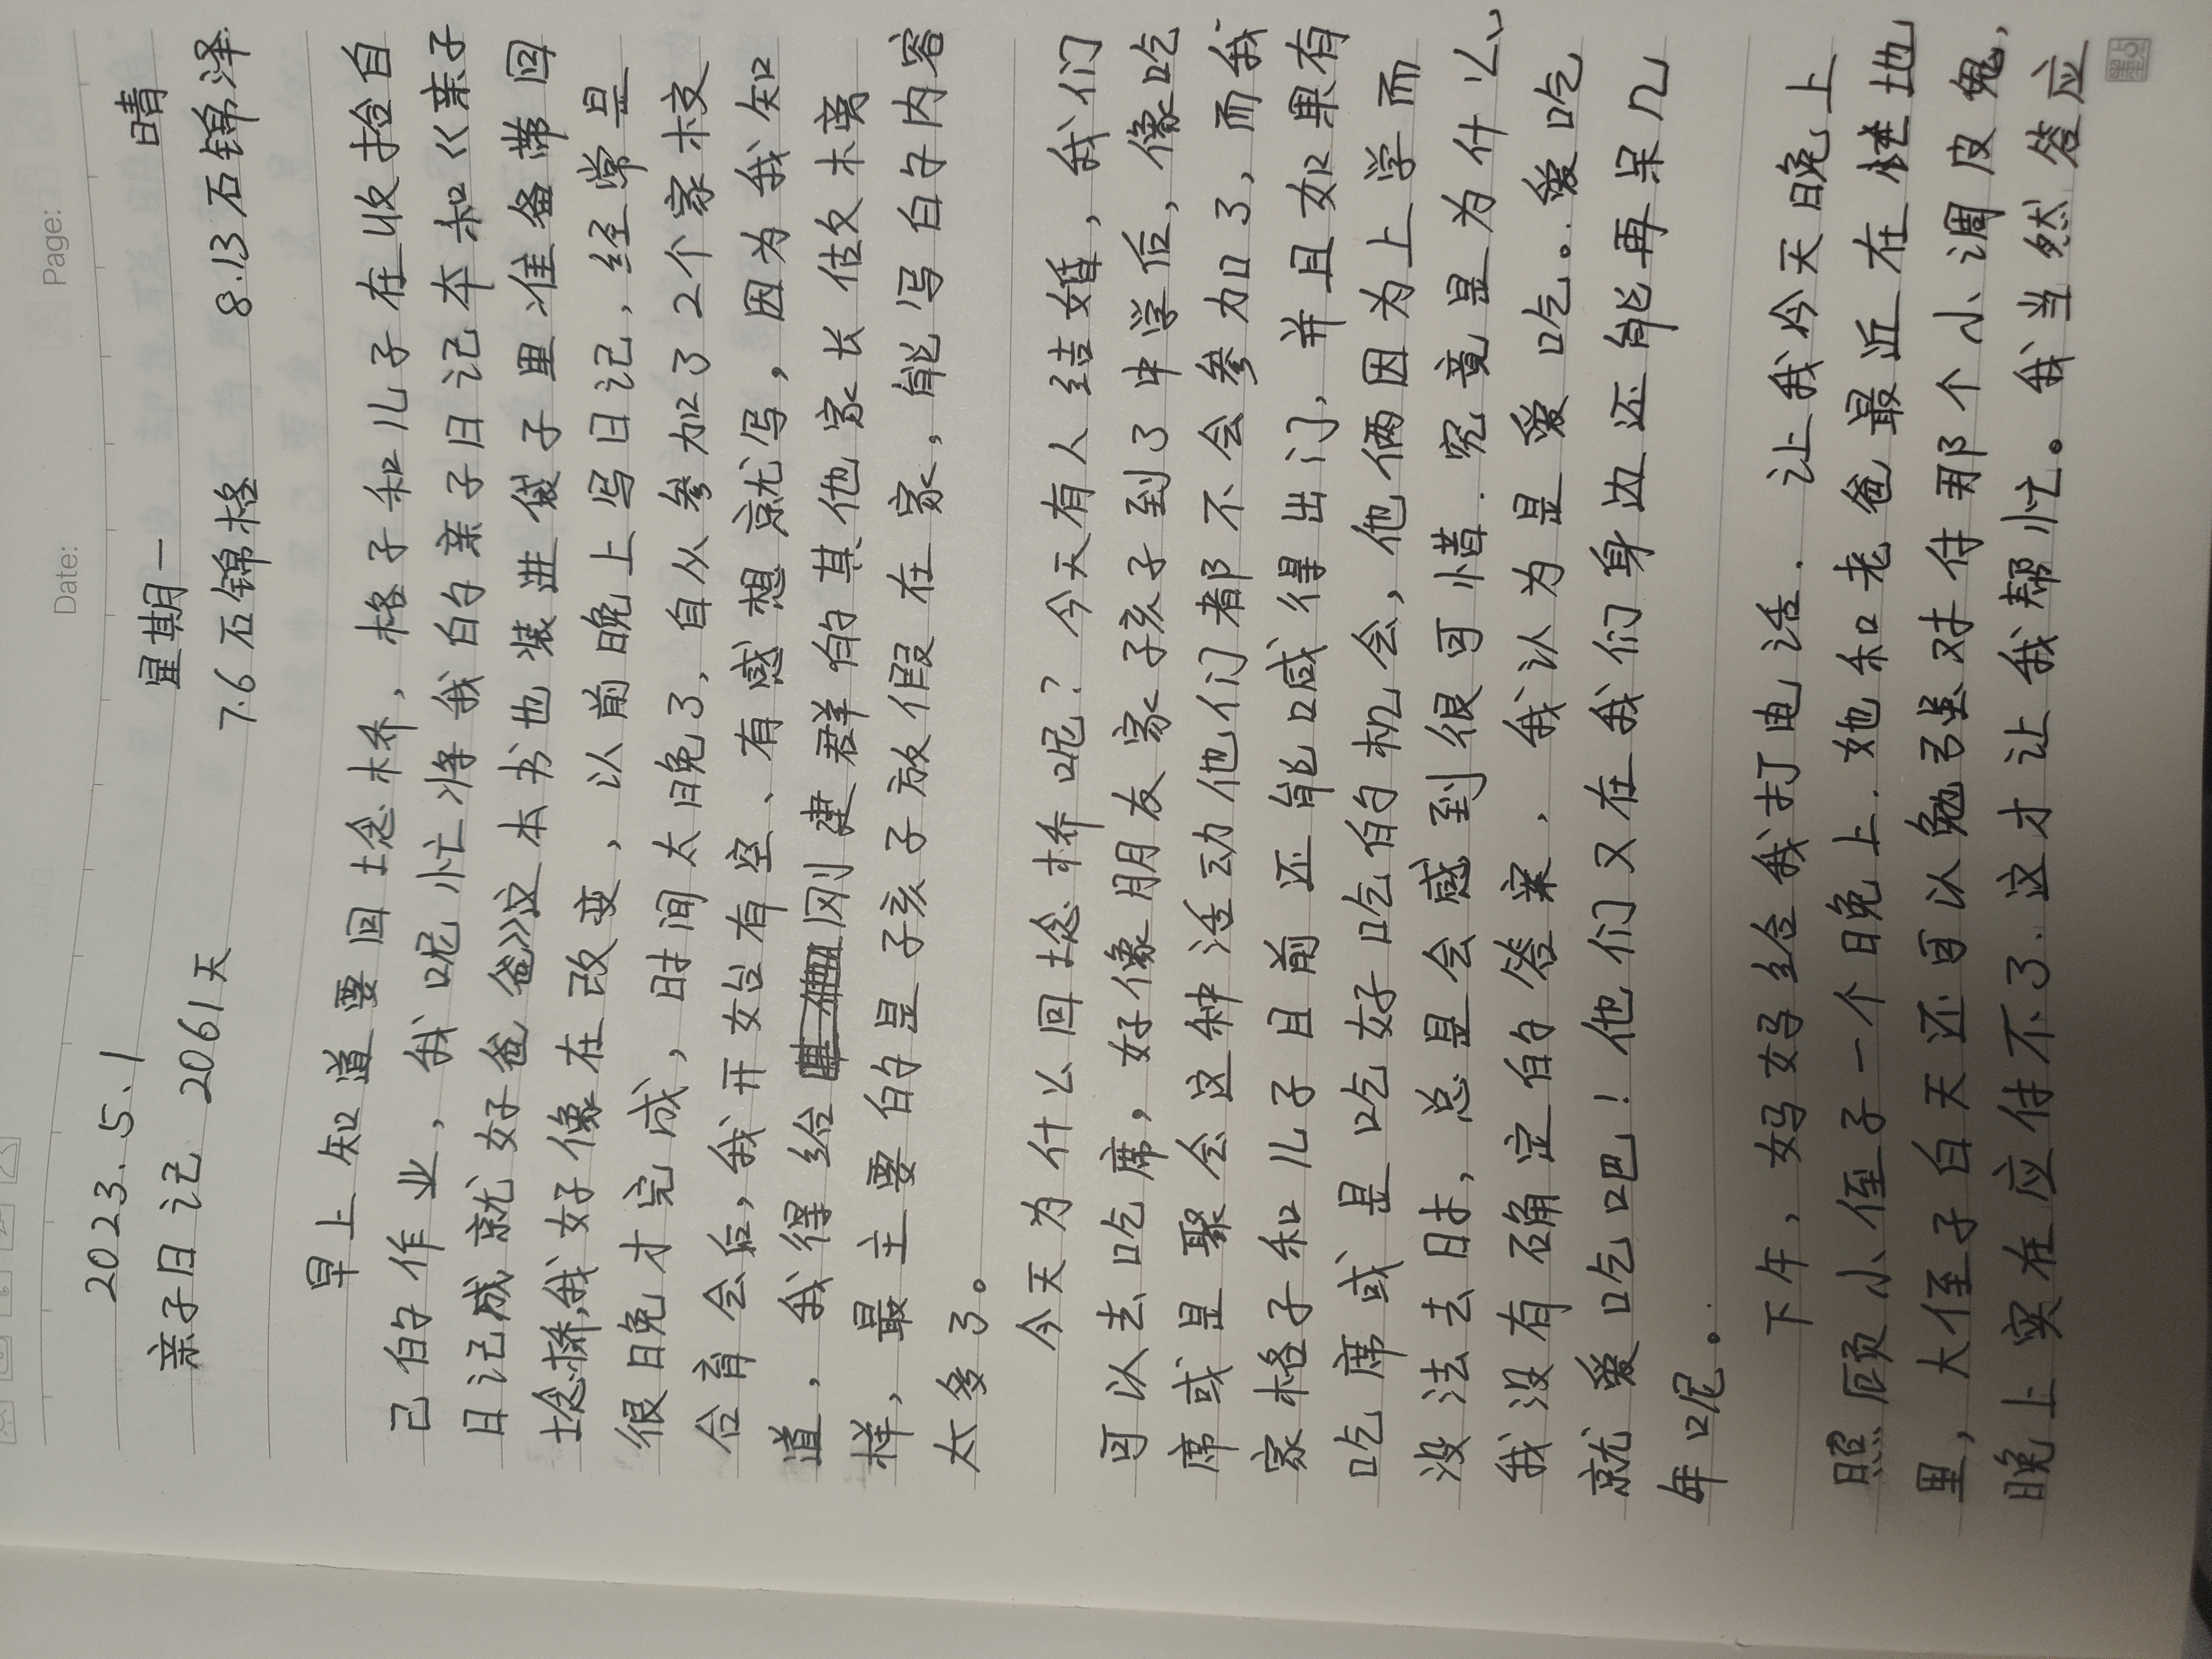 Date: Page:
2023.5.1 星期一 晴
亲子日记 2061天 7.6石锦格 8.13石锦泽
早上知道要回埝桥，格子和儿子在收拾自
己的作业，我呢忙将我的亲子日记本和《亲子
日记成就好爸爸》这本书也装进袋子里准备带回
埝桥，我好像在改变，以前晚上写日记，经常是
很晚才完成，时间太晚了，自从参加了2个家校
合育会后，我开始有空、有感想就写，因为我知
道，我得给刚建群的其他家长做好榜
样，最主要的是孩子放假在家，能写的内容
太多了。
今天为什么回埝桥呢？今天有人结婚，我们
可以去吃席，好像朋友家孩子到了中学后，像吃
席或是聚会这种活动他们都不会参加了，而我
家格子和儿子目前还能喊得出门，并且如果有
吃席或是吃好吃的机会，他俩因为上学而
没法去时，总是会感到很可惜．究竟是为什么，
我没有确定的答案，我认为是爱吃。爱吃
就爱吃吧！他们又在我们身边还能再呆几
年呢。
下午，妈妈给我打电话．让我今天晚上
照顾小侄子一个晚上．她和老爸最近在挂地
里，大侄子白天还可以勉强对付那个小调皮鬼，
晚上实在应付不了．这才让我帮忙。我当然答应